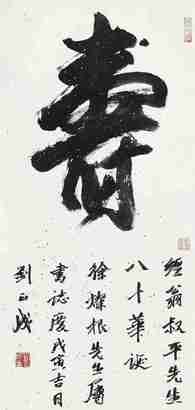 壽
經翁叔平先生
八十華誕
徐燦根先生屬
書誌慶戊寅吉日
劉正成